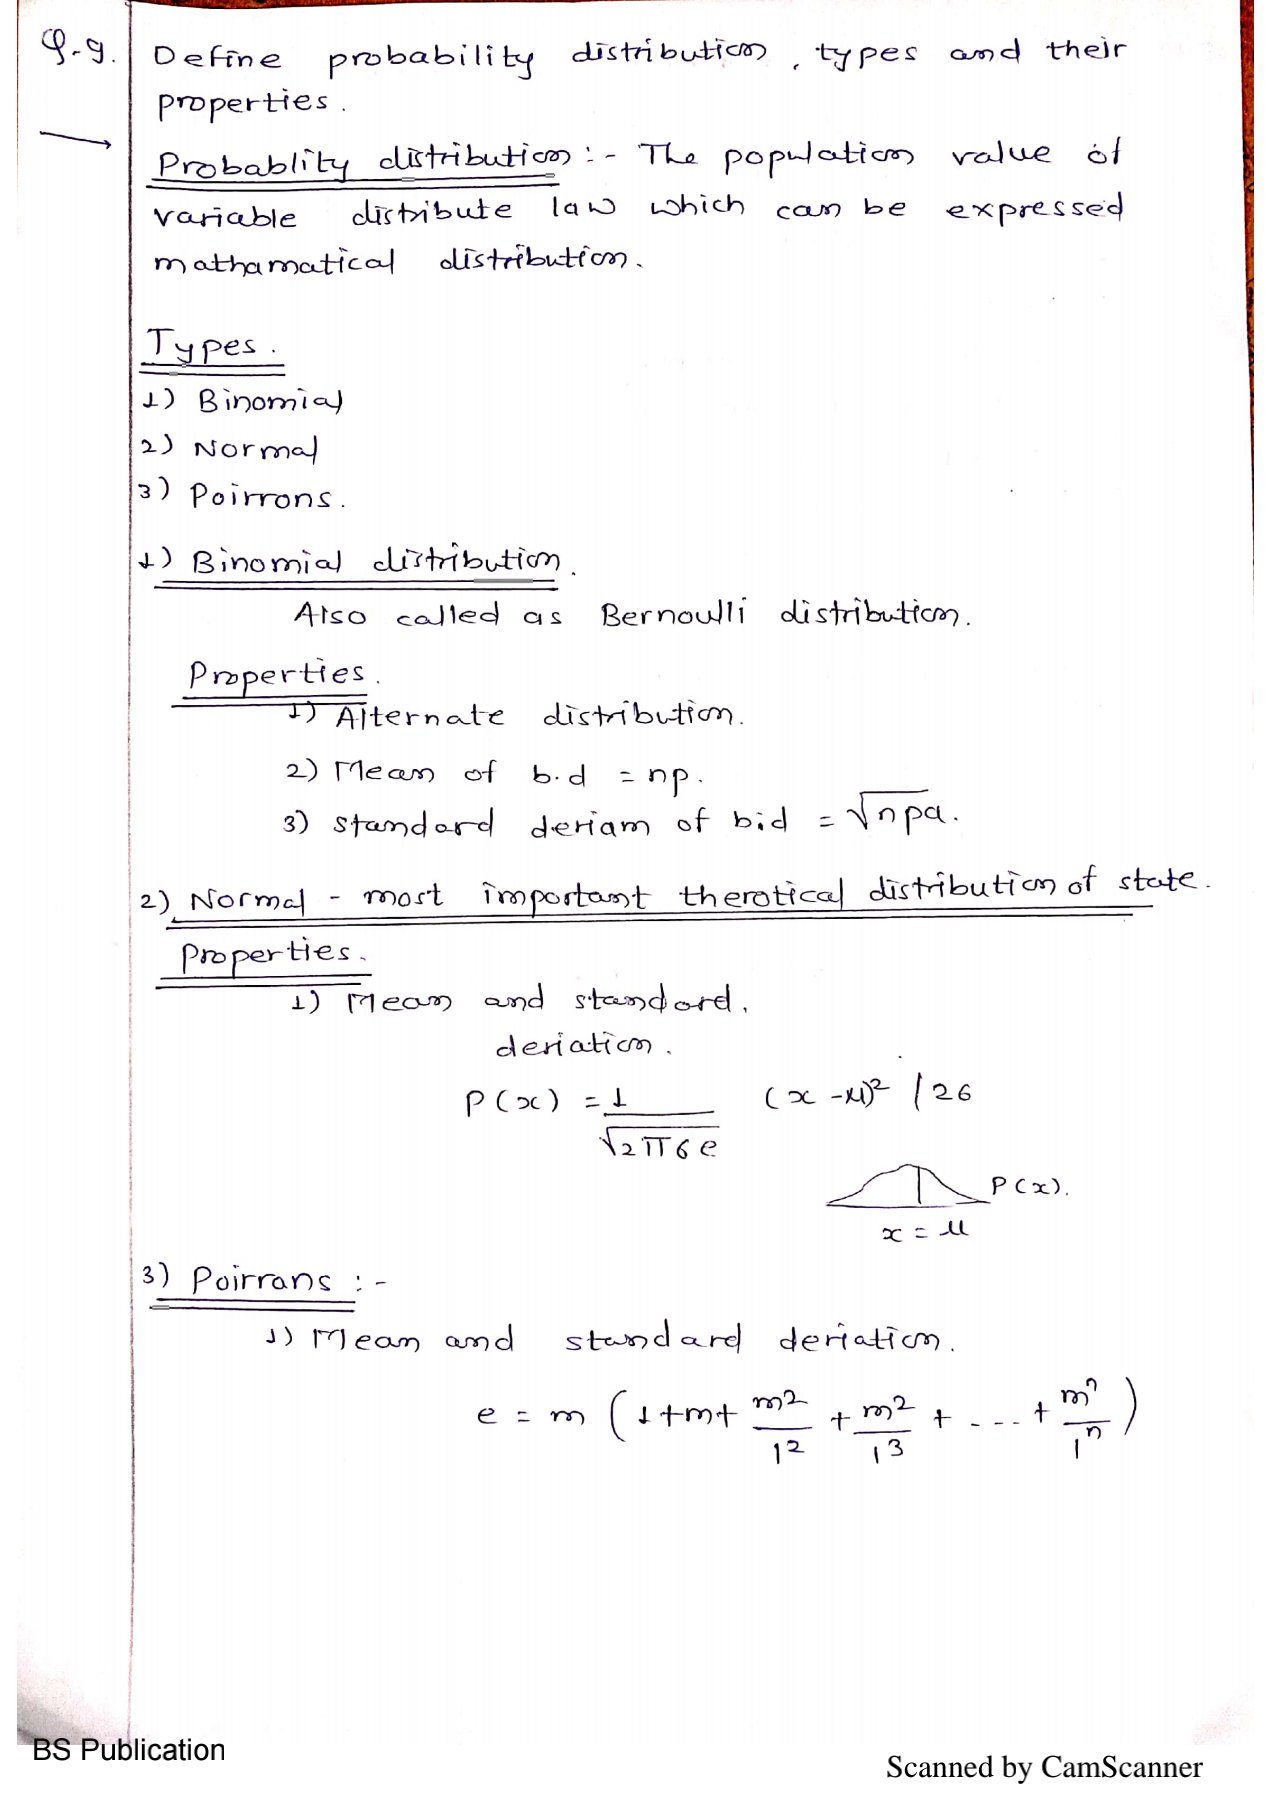 Q-9. Define probability distribution, types and their
properties.
Probablity distribution :- The population value of
variable distribute law which can be expressed
mathamatical distribution.
Types.
1) Binomial
2) Normal
3) Poirrons.
1) Binomial distribution.
Also called as Bernoulli distribution.
Properties.
1) Alternate distribution.
2) Mean of b.d = np.
3) standard deriam of bid = √npa.
2) Normal - most important therotical distribution of state.
Properties.
1) Mean and standard.
deriation.
P(x) = 1/√2π6e (x-μ)² / 26
P(x).
x = μ
3) Poirrans :-
1) Mean and standard deriation.
e = m (1+m+ m2/12 + m2/13 + ... + mⁿ/1ⁿ)
BS Publication
Scanned by CamScanner